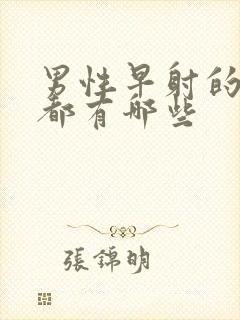 男性早射的
都有哪些
張錦明